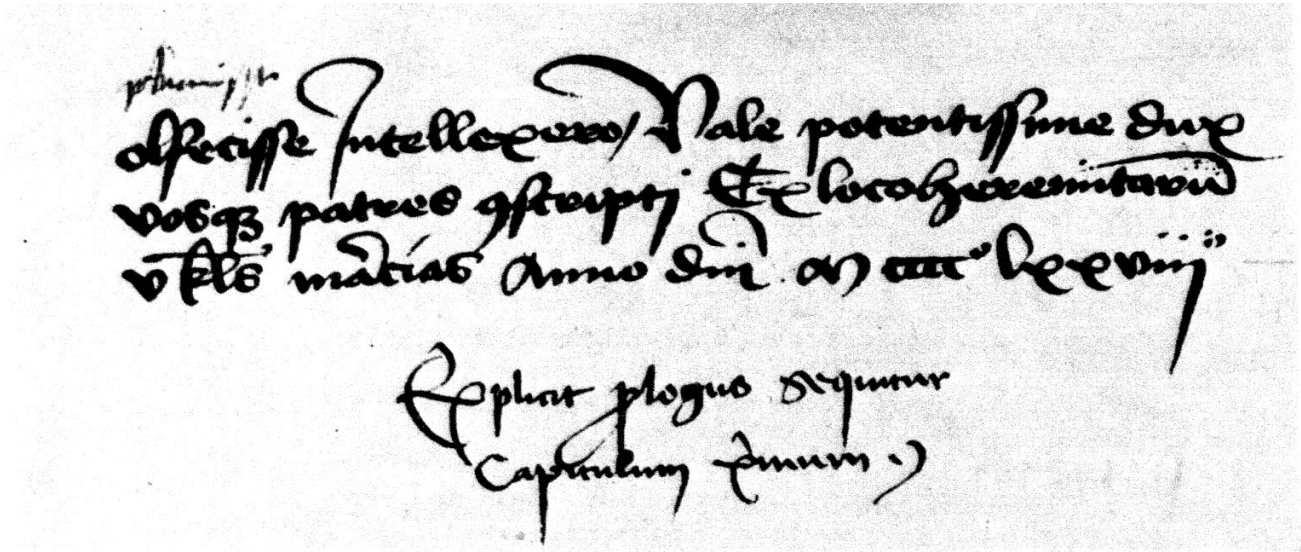 olfecisse Intellexero / Vale potentissime dux
vosqꝫ patres ꝯscripti Ex loco heremitarū
v kl̄s m̄acias Anno dn̄i M cccc° lxxviiij
Explicit ꝓlogus sequitur
Capitulum pͥmum